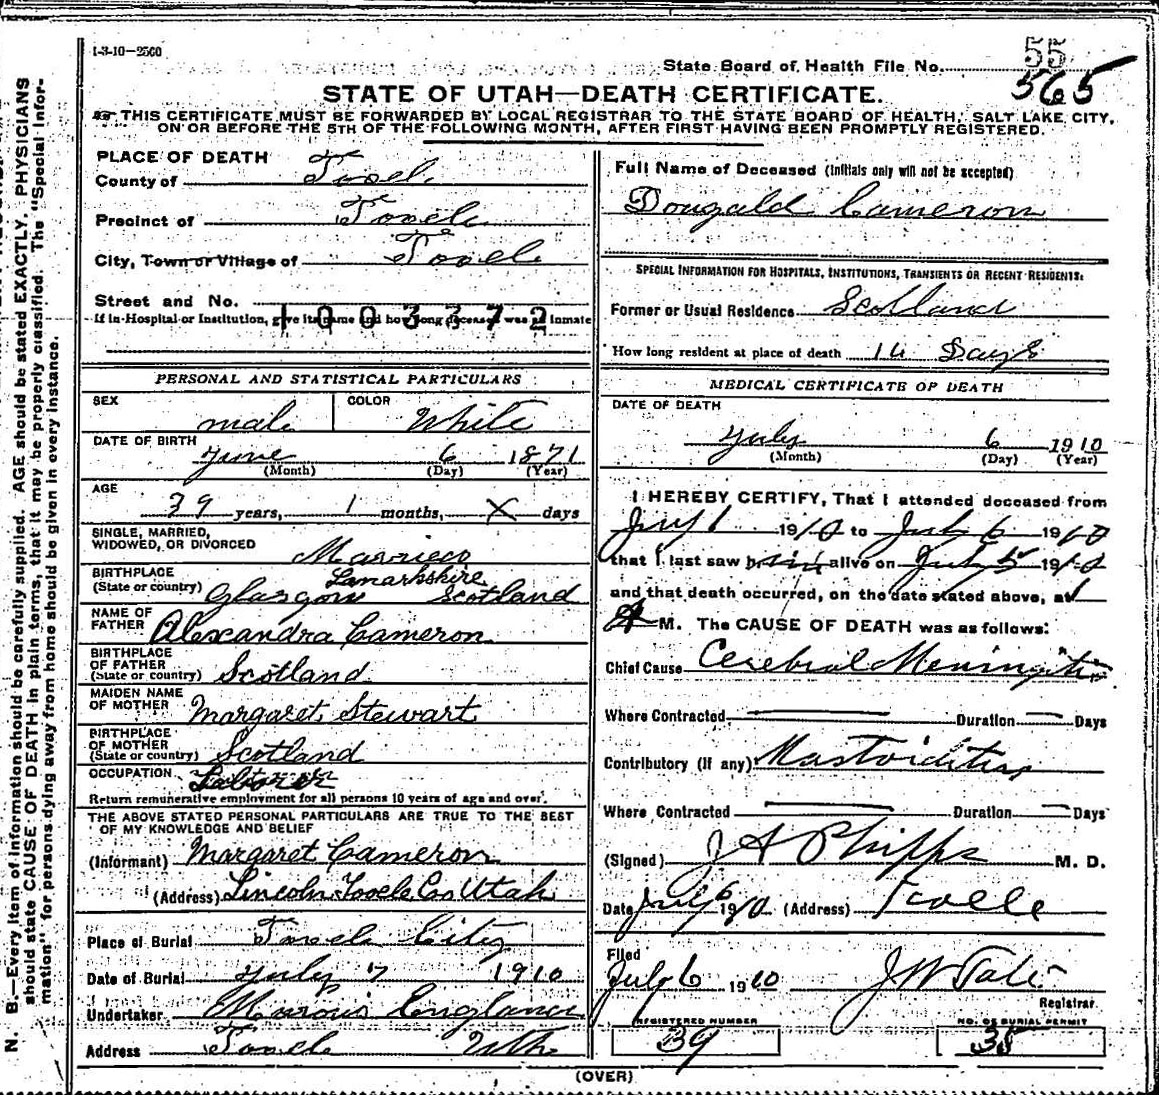 1-3-10-2500
55
State Board of Health File No. 565
STATE OF UTAH—DEATH CERTIFICATE.
THIS CERTIFICATE MUST BE FORWARDED BY LOCAL REGISTRAR TO THE STATE BOARD OF HEALTH, SALT LAKE CITY,
ON OR BEFORE THE 5TH OF THE FOLLOWING MONTH, AFTER FIRST HAVING BEEN PROMPTLY REGISTERED.
N. B.—Every item of information should be carefully supplied. AGE should be stated EXACTLY. PHYSICIANS
should state CAUSE OF DEATH in plain terms, that it may be properly classified. The "Special Infor-
mation" for persons dying away from home should be given in every instance.
PLACE OF DEATH
County of Tooele
Precinct of Tooele
City, Town or Village of Tooele
Street and No.
If in Hospital or Institution, give its name and how long deceased was an inmate
1003372
PERSONAL AND STATISTICAL PARTICULARS
SEX male COLOR White
DATE OF BIRTH
June 6 1871
(Month) (Day) (Year)
AGE
39 years, 1 months, X days
SINGLE, MARRIED,
WIDOWED, OR DIVORCED Married
BIRTHPLACE Lanarkshire
(State or country) Glasgow Scotland
NAME OF
FATHER Alexandra Cameron
BIRTHPLACE
OF FATHER
(State or country) Scotland
MAIDEN NAME
OF MOTHER Margaret Stewart
BIRTHPLACE
OF MOTHER
(State or country) Scotland
OCCUPATION Laborer
Return remunerative employment for all persons 10 years of age and over.
THE ABOVE STATED PERSONAL PARTICULARS ARE TRUE TO THE BEST
OF MY KNOWLEDGE AND BELIEF
(Informant) Margaret Cameron
(Address) Lincoln Tooele Co Utah
Place of Burial Tooele City
Date of Burial July 7 1910
Undertaker England
Address Tooele Utah
Full Name of Deceased (Initials only will not be accepted)
Dougald Cameron
SPECIAL INFORMATION FOR HOSPITALS, INSTITUTIONS, TRANSIENTS OR RECENT RESIDENTS:
Former or Usual Residence Scotland
How long resident at place of death 14 Days
MEDICAL CERTIFICATE OF DEATH
DATE OF DEATH
July 6 1910
(Month) (Day) (Year)
I HEREBY CERTIFY, That I attended deceased from
July 1 1910 to July 6 1910
that I last saw him alive on July 5 1910
and that death occurred, on the date stated above, at 1
A M. The CAUSE OF DEATH was as follows:
Chief Cause Cerebral Meningitis
Where Contracted Duration Days
Contributory (if any) Mastoiditis
Where Contracted Duration Days
(Signed) J A Phipps M. D.
Date July 6 1910 (Address) Tooele
Filed
July 6 1910
Registrar
REGISTERED NUMBER
39
NO. OF BURIAL PERMIT
35
(OVER)